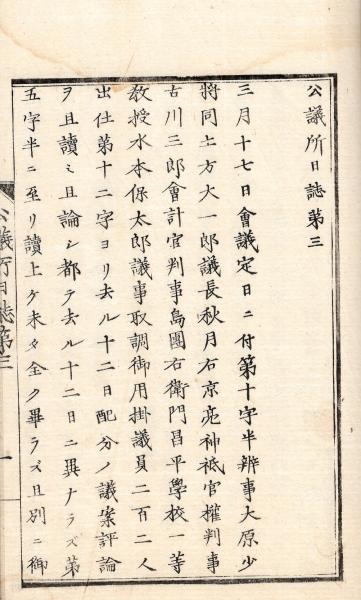 公議所日誌第三
三月十七日會議定日ニ付第十字半辨事大原少
將同土方大一郎議長秋月右京亮神祇官權判事
古川三郎會計官判事島團右衛門昌平學校一等
教授水本保太郎議事取調御用掛議員二百二人
出仕第十二字ヨリ去ル十二日配分ノ議案評論
ヲ且讀ミ且論シ都テ去ル十二日ニ異ナラズ第
五字半ニ至リ讀上ケ未タ全ク畢ラズ且別ニ御
公議所日誌第三
一